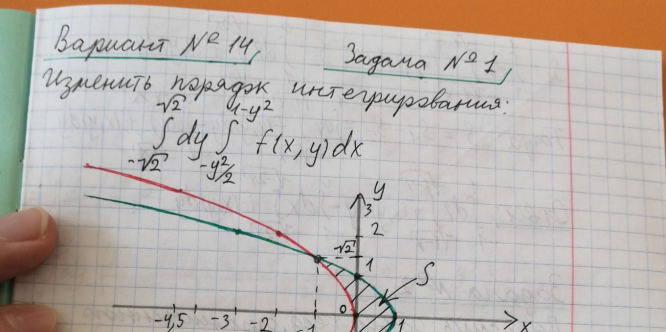 Вариант № 14,
Задача № 1,
Изменить порядк интегрирования:
√2 1-y²
∫ dy ∫ f(x, y) dx
-√2 -y²/2
y
3
2
√2
1
S
-4,5 -3 -2 -1 0 1 x